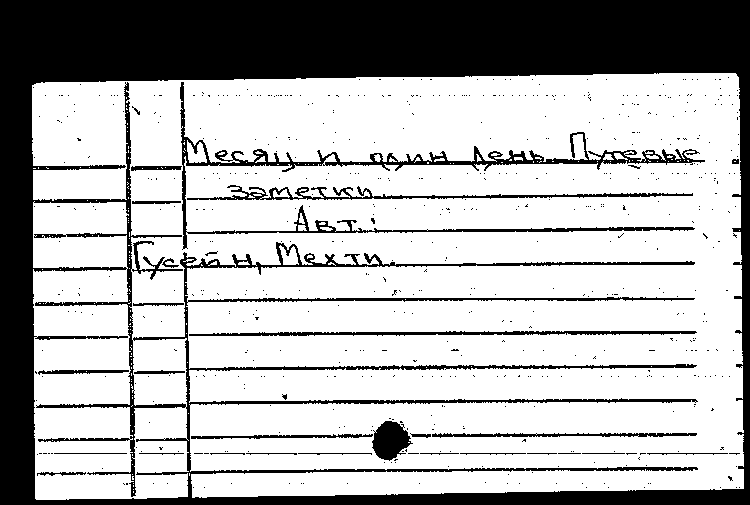 Месяц и один день. Путевые
заметки.
Авт.:
Гусейн, Мехти.